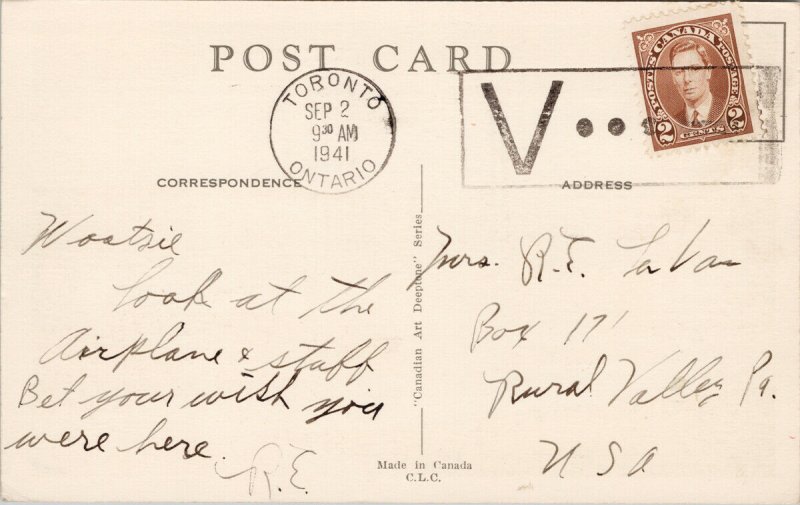 POST CARD
TORONTO
SEP 2
9³⁰ AM
1941
ONTARIO
V
CANADA
POSTES POSTAGE
2 CENTS 2
CORRESPONDENCE
ADDRESS
Wootsie
Look at the
Airplane & stuff
Bet your wish you
were here.
R.E.
"Canadian Art Deeptone" Series
Mrs. R.E. La Van
Box 171
Rural Valley Pa.
USA
Made in Canada
C.L.C.